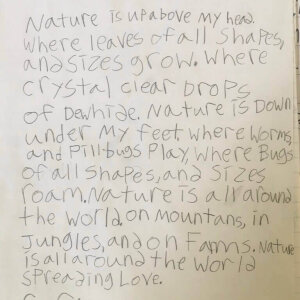 Nature is up above my head.
Where leaves of all shapes,
and sizes grow. Where
crystal clear drops
of Dewhide. Nature is Down
under my feet where worms,
and Pillbugs Play, Where Bugs
of all shapes, and sizes
roam. Nature is all around
the world, on mountans, in
Jungles, and on Farms. Nature
is all around the world
spreading Love.